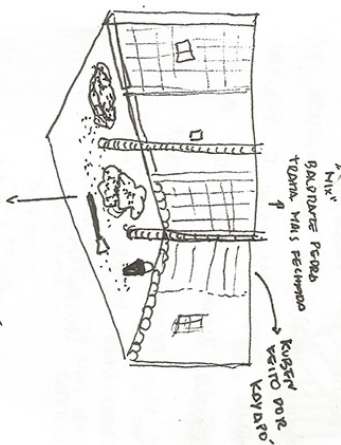 "MIX"
BALDRAME PEDRA
TRAMA MAIS FECHADA
KUBEN
FEITO POR
KAYAPÓ